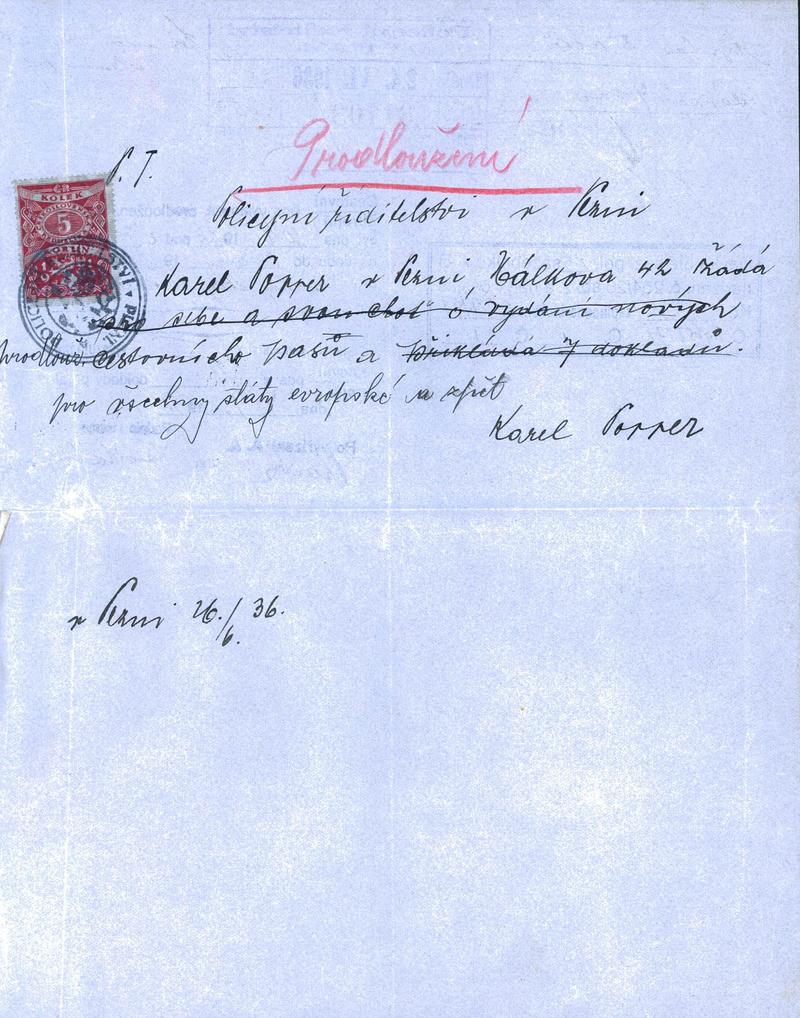 Prodloužení
P. T.
Policejní ředitelství v Plzni
KOLEK
5
Karel Popper v Plzni Hálkova 42 žádá
pro sebe a svou choť o vydání nových
prodlouž. cestovních pasů a přikládá 7 dokladů.
pro všechny státy evropské a zpět
Karel Popper
v Plzni 26./6. 36.